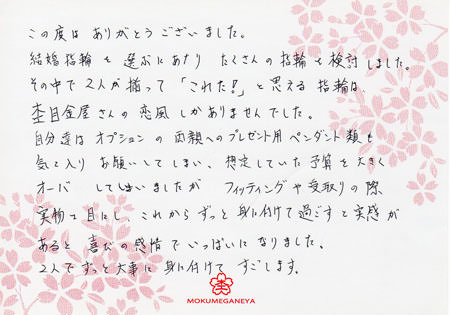 この度は ありがとうございました。
結婚指輪を選ぶにあたり たくさんの指輪を検討しました。
その中で2人が揃って「これだ!」と思える指輪は、
杢目金屋さんの恋風しかありませんでした。
自分達はオプションの両親へのプレゼント用ペンダント類も
気に入りお願いしてしまい、想定していた予算を大きく
オーバーしてしまいましたが フィッティングや受取りの際、
実物を目にし、これからずっと身に付けて過ごすと実感が
あると喜びの感情でいっぱいになりました。
2人でずっと大事に身に付けてすごします。
MOKUMEGANEYA